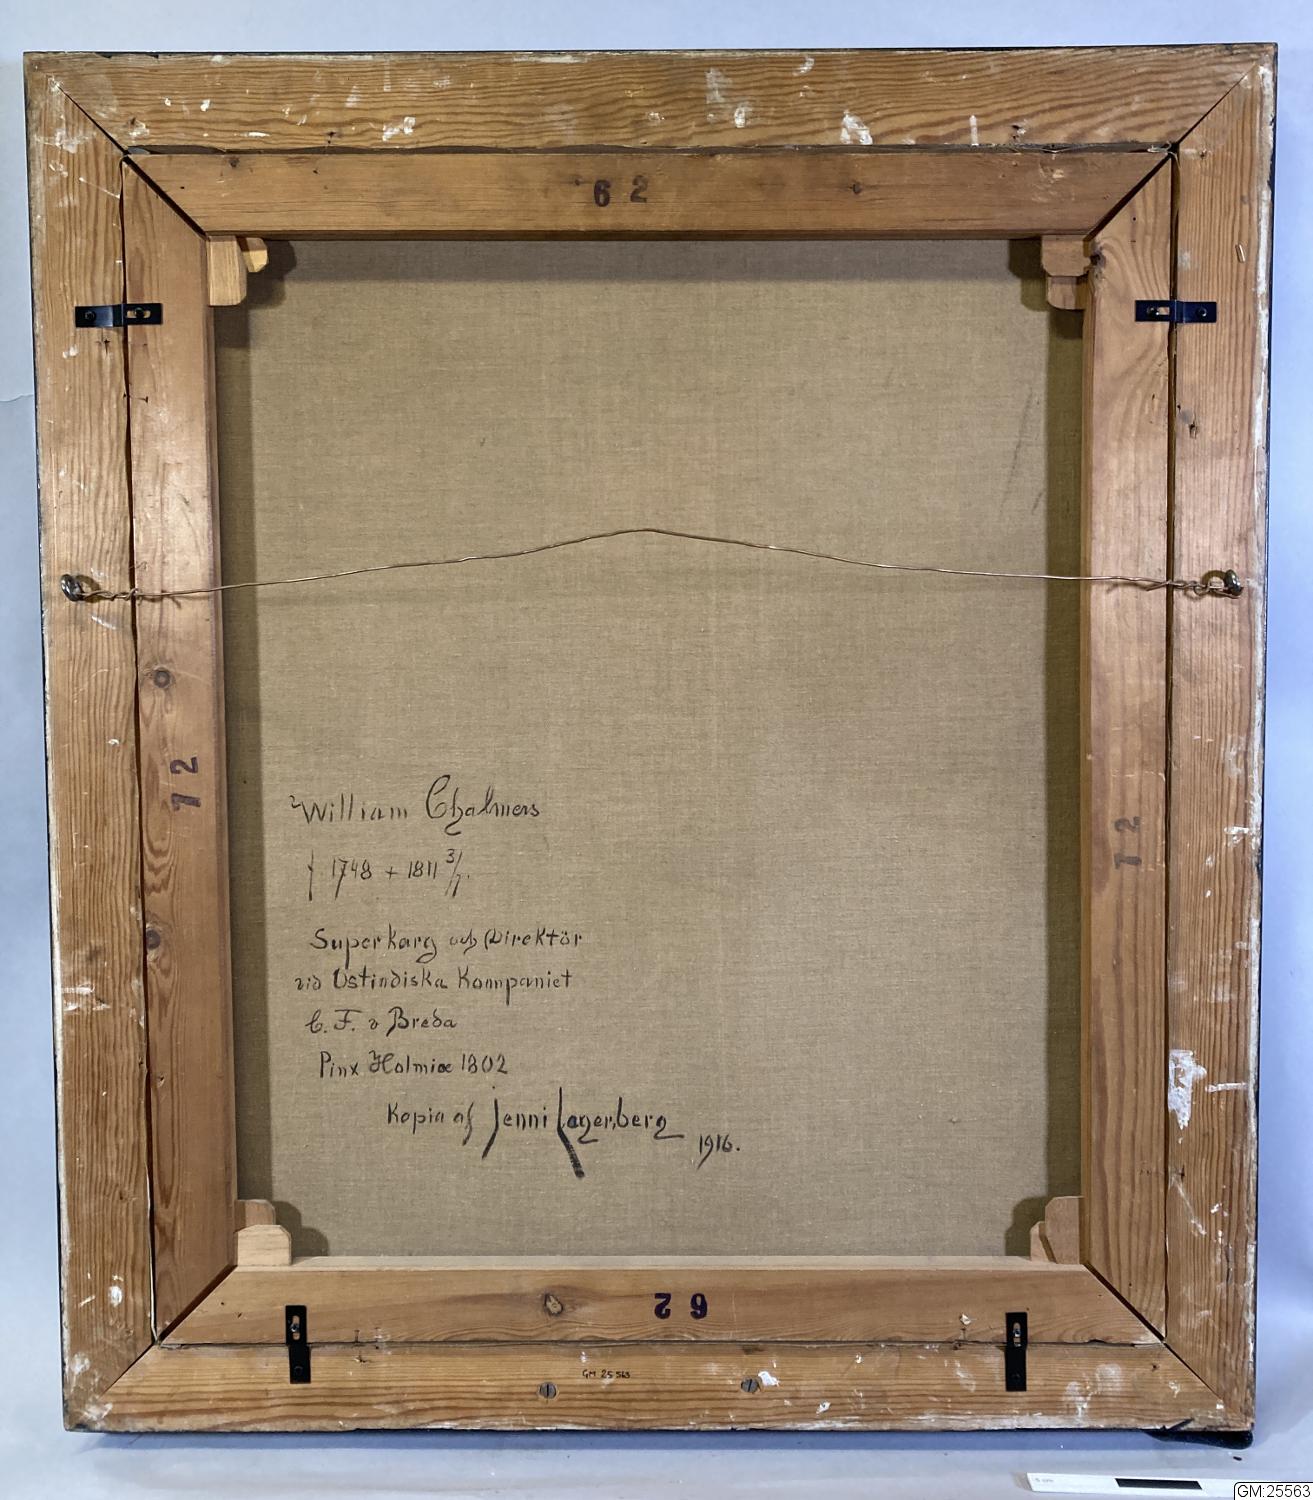 62
William Chalmers
f 1748 + 1811 3/7.
Superkarg och Direktör
vid Ostindiska Kompaniet
C. F. v Breda
Pinx Holmiæ 1802
Kopia af Jenni Lagerberg
1916.
72
72
62
GM 25 563
5 cm
GM:25563